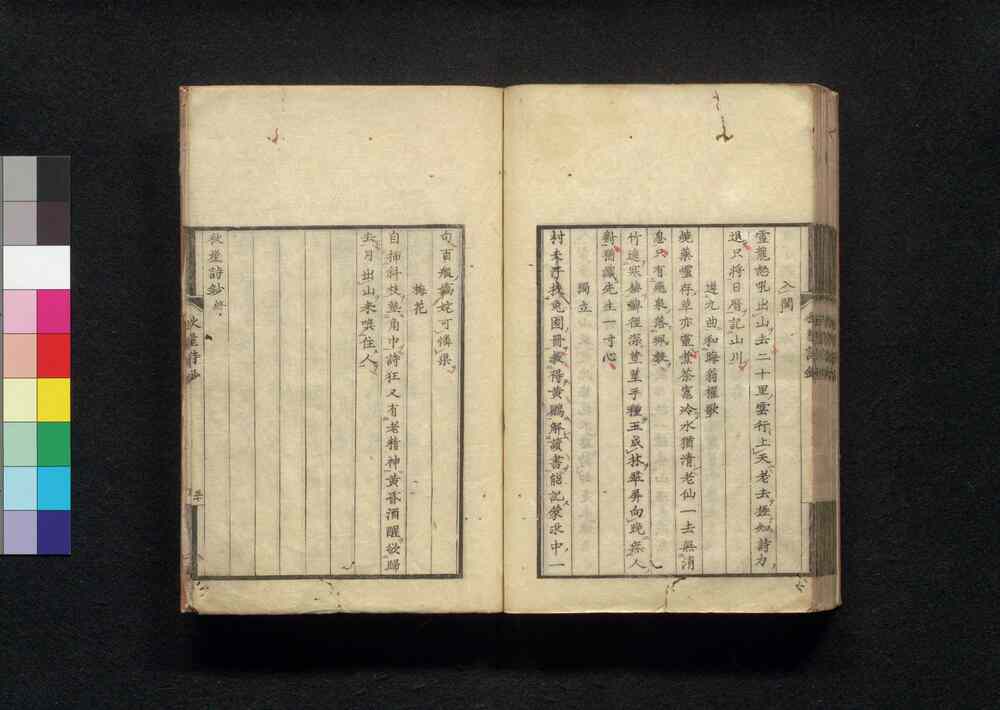 入閩
靈籠怒吼出山去二十里雲行上天老去極知詩力
退只將日曆記山川
進九曲和晦翁櫂歌
燒藥爐存草亦靈煮茶竈冷水猶清老仙一去無消
息只有飛泉落珮聲
竹邊寒棲蘚徑深蒼莖手種玉成林翠屏向晚無人
對猶識先生一寸心
獨立
村夫子挾兎園冊教得黃鸝解讀書能記蒙求中一
句百般嬌姹可憐渠
梅花
自拂斜枝墊角巾詩狂又有老精神黃昏酒醒欲歸
去月出山來喚住人
秋崖詩鈔終
秋崖詩鈔